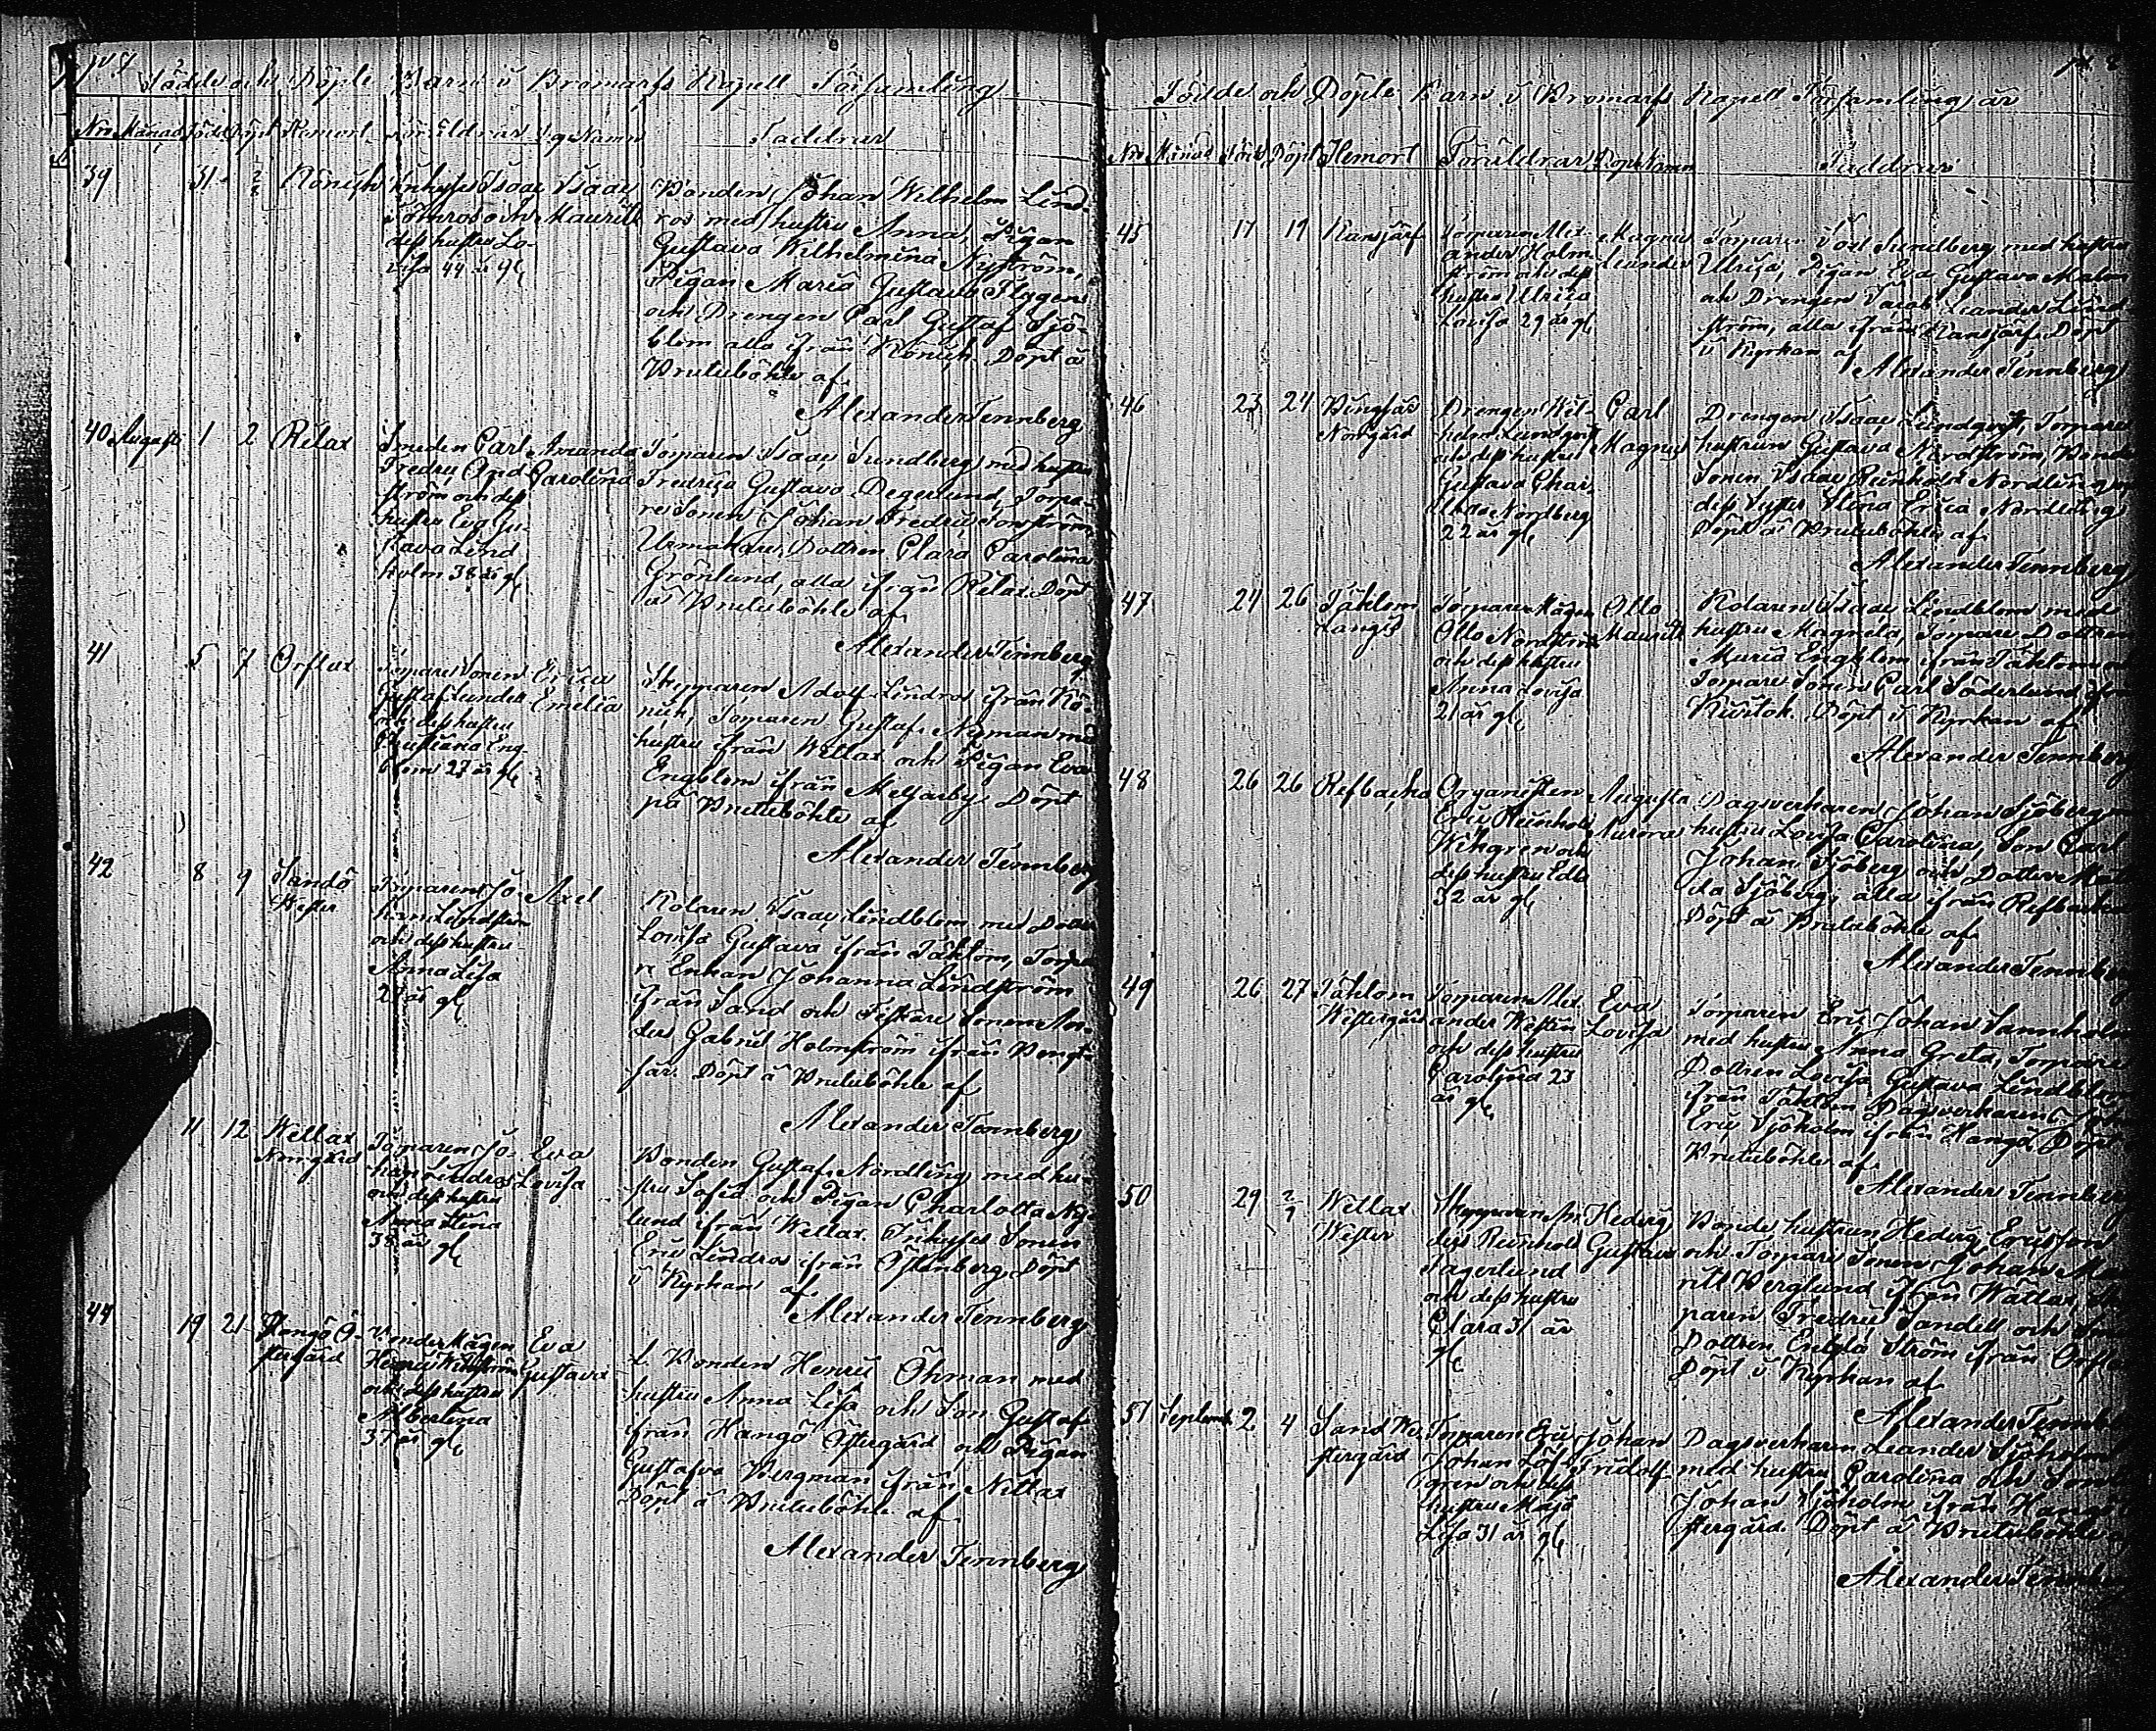 Födde och Döpte Barn i Bromarfs Kapell Församling
Nro Månad Född Döpt Hemort Föräldrar Dop Namn Faddrar
39 31 2/8 Könick Inhyses Isaac Isaac Bonden Johan Wilhelm Lind-
Sömros och Mauritz ros med hustru Anna, Pigan
dess hustru Lo- Gustava Wilhelmina Nyström,
visa 44 år gl. Pigan Maria Gustava Flygen
och Drengen Carl Gustaf Sjö-
blom alla ifrån Könick. Döpt å
Prutuböhle af
Alexander Tennberg
40 Augusti 1 2 Rilax Smeden Carl Amanda Torparen Isaac Sundberg med hustru
Fredric And- Carolina Fredrica Gustava Degerlund, Torpa-
ström och dess re Sonen Johan Fredric
hustru Eva Gu- Urmakare Dottren Clara Carolina
stava Lind Grönlund, alla ifrån Rilax. Döpt
holm 38 år gl. å Prutuböhle af
Alexander Tennberg
41 5 7 Orslax Torpare Sonen Erica Skepparen Adolf Lindros ifrån Kö-
Gustaf Lunder Emelia nick, Torparen Gustaf Nyman med
och dess hustru hustru ifrån Wettlax och Pigan Eva
Christiana Eng Engblom ifrån Meljarby. Döpt
blom 27 år gl. på Prutuböhle af
Alexander Tennberg
42 8 9 Sandö Torparen Jo- Axel Kolaren Isaac Lindblom med Dotter
Wester han Lindström Lovisa Gustava ifrån Täktom, Torpa
och dess hustru re Enkan Johanna Lindström
Anna Lisa ifrån Sand och Fiskare Sonen An-
29 år gl. der Gabriel Holmström ifrån Bengt-
sår. Döpt å Prutuböhle af
Alexander Tennberg
11 12 Wettlax Torparen Jo- Eva Bonden Gustaf Nordling med hu-
Norrgård han Lindros Lovisa stru Sofia och Pigan Charlotta Ny-
och dess hustru lund ifrån Wettlax. Inhyses Sonen
Anna Stina Eric Lindros ifrån Östenberg. Döpt
38 år gl. i Kyrkan af
Alexander Tennberg
44 19 21 Hangö Ö- Bonde Mågen Eva L. Bonden Henric Öhman med
stergård Henric Gustava hustru Anna Lisa och Son Gustaf
och dess hustru ifrån Hangö Östergård och Pigan
Albertina Gustafva Bergman ifrån Nitlax
37 år gl. Döpt å Prutuböhle af
Alexander Tennberg
Födde och Döpte Barn i Bromarfs Kapell Församling år
Nro Månad Född Döpt Hemort Föräldrar Dop Namn Faddrar
45 17 19 Kansjärf Torparen Alex- Magnus Torparen Joel Sundberg med hustru
ander Holm- Leander Ulrica, Pigan Eva Gustava Malm
ström och dess och Drengen Jacob Leander Lind-
hustru Ulrica ström, alla ifrån Kansjärf. Döpt
Lovisa 29 år gl. i Kyrkan af
Alexander Tennberg
46 23 24 Bengtsår Drengen Wil- Carl Drengen Isaac Lundqvist, Torpare
Norrgård helm Lundqvist Magnus hustrun Gustava Nordström, Bonde
och dess hustru Sonen Isaac Reinhold Nordling och
Gustava Char- dess Syster Stina Erica Nordling
lotta Nordberg Döpt å Prutuböhle af
22 år gl.
Alexander Tennberg
47 24 26 Täktom Torpare Mågen Otto Kolaren Isaac Lindblom med
Långs Otto Nordström Mauritz hustru Magreta, Torpare Dottren
och dess hustru Maria Engblom ifrån Täktom och
Anna Lovisa Torpare Sonen Carl Söderlund ifrån
21 år gl. Döpt i Kyrkan af
Alexander Tennberg
48 26 26 Refbacka Organisten Augusta Dagsverkaren Johan Sjöberg med
Eric Reinhold Aurora hustru Lovisa Carolina, Son Carl
Wikgren och Johan Sjöberg och Dotter Mat-
dess hustru Edla ilda Sjöberg, alla ifrån Refbacka
32 år gl. Döpt å Prutuböhle af
Alexander Tennberg
49 26 27 Täktom Torparen Alex- Eva Torparen Eric Johan Sannholm
Westergård ander Westin Lovisa med hustru Anna Greta, Torpare
och dess hustru Dottren Lovisa Gustava Lindblom
Carolina 23 ifrån Täktom Dagsverkaren
år gl. Eric Sjöholm ifrån Hangö Döpt
Prutuböhle af
Alexander Tennberg
50 29 2/9 Wettlax Skepparen An- Hedvig Bonde hustrun Hedvig Ericsson
Wester ders Reinhold Gustava och Torpare Sonen Johan Mau-
Fagerlund ritz Berglund ifrån Wättlax,
och dess hustru paren Fredric Sandell och
Clara 31 år Dottren Ström ifrån Orslax
gl. Döpt i Kyrkan af
Alexander Tennberg
51 Septemb. 2 4 Sand We- Torparen Eric Johan Dagsverkaren Leander Sjöholm
stergård Johan Löf- Fridolf med hustru Carolina och Sonen
gren och dess Johan Sjöholm ifrån Hangö
hustru Maja stergård. Döpt å Prutuböhle
Lisa 31 år gl.
Alexander Tennberg